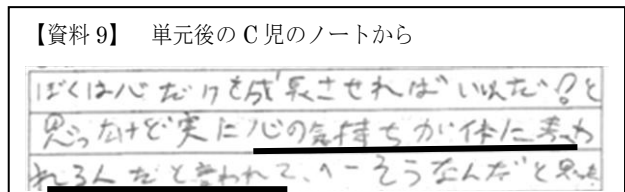 【資料 9】 単元後の C 児のノートから
ぼくは心だけを成長させればいいんだ?と
思ったけど実に心の気持ちが体に表わ
れるんだと言われて、へーそうなんだと思った